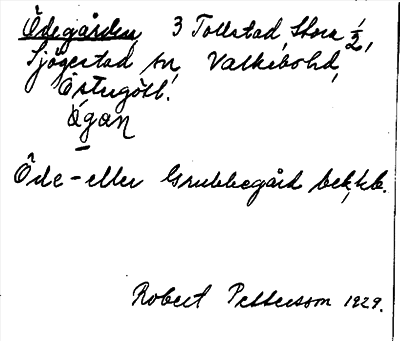 Ödegården, 3 Tollstad, Stora 1/2,
Sjögestad sn, Valkebohd,
Östergötl.
ägan
Öde-eller Grubbegård
Robert Pettersson 1929.